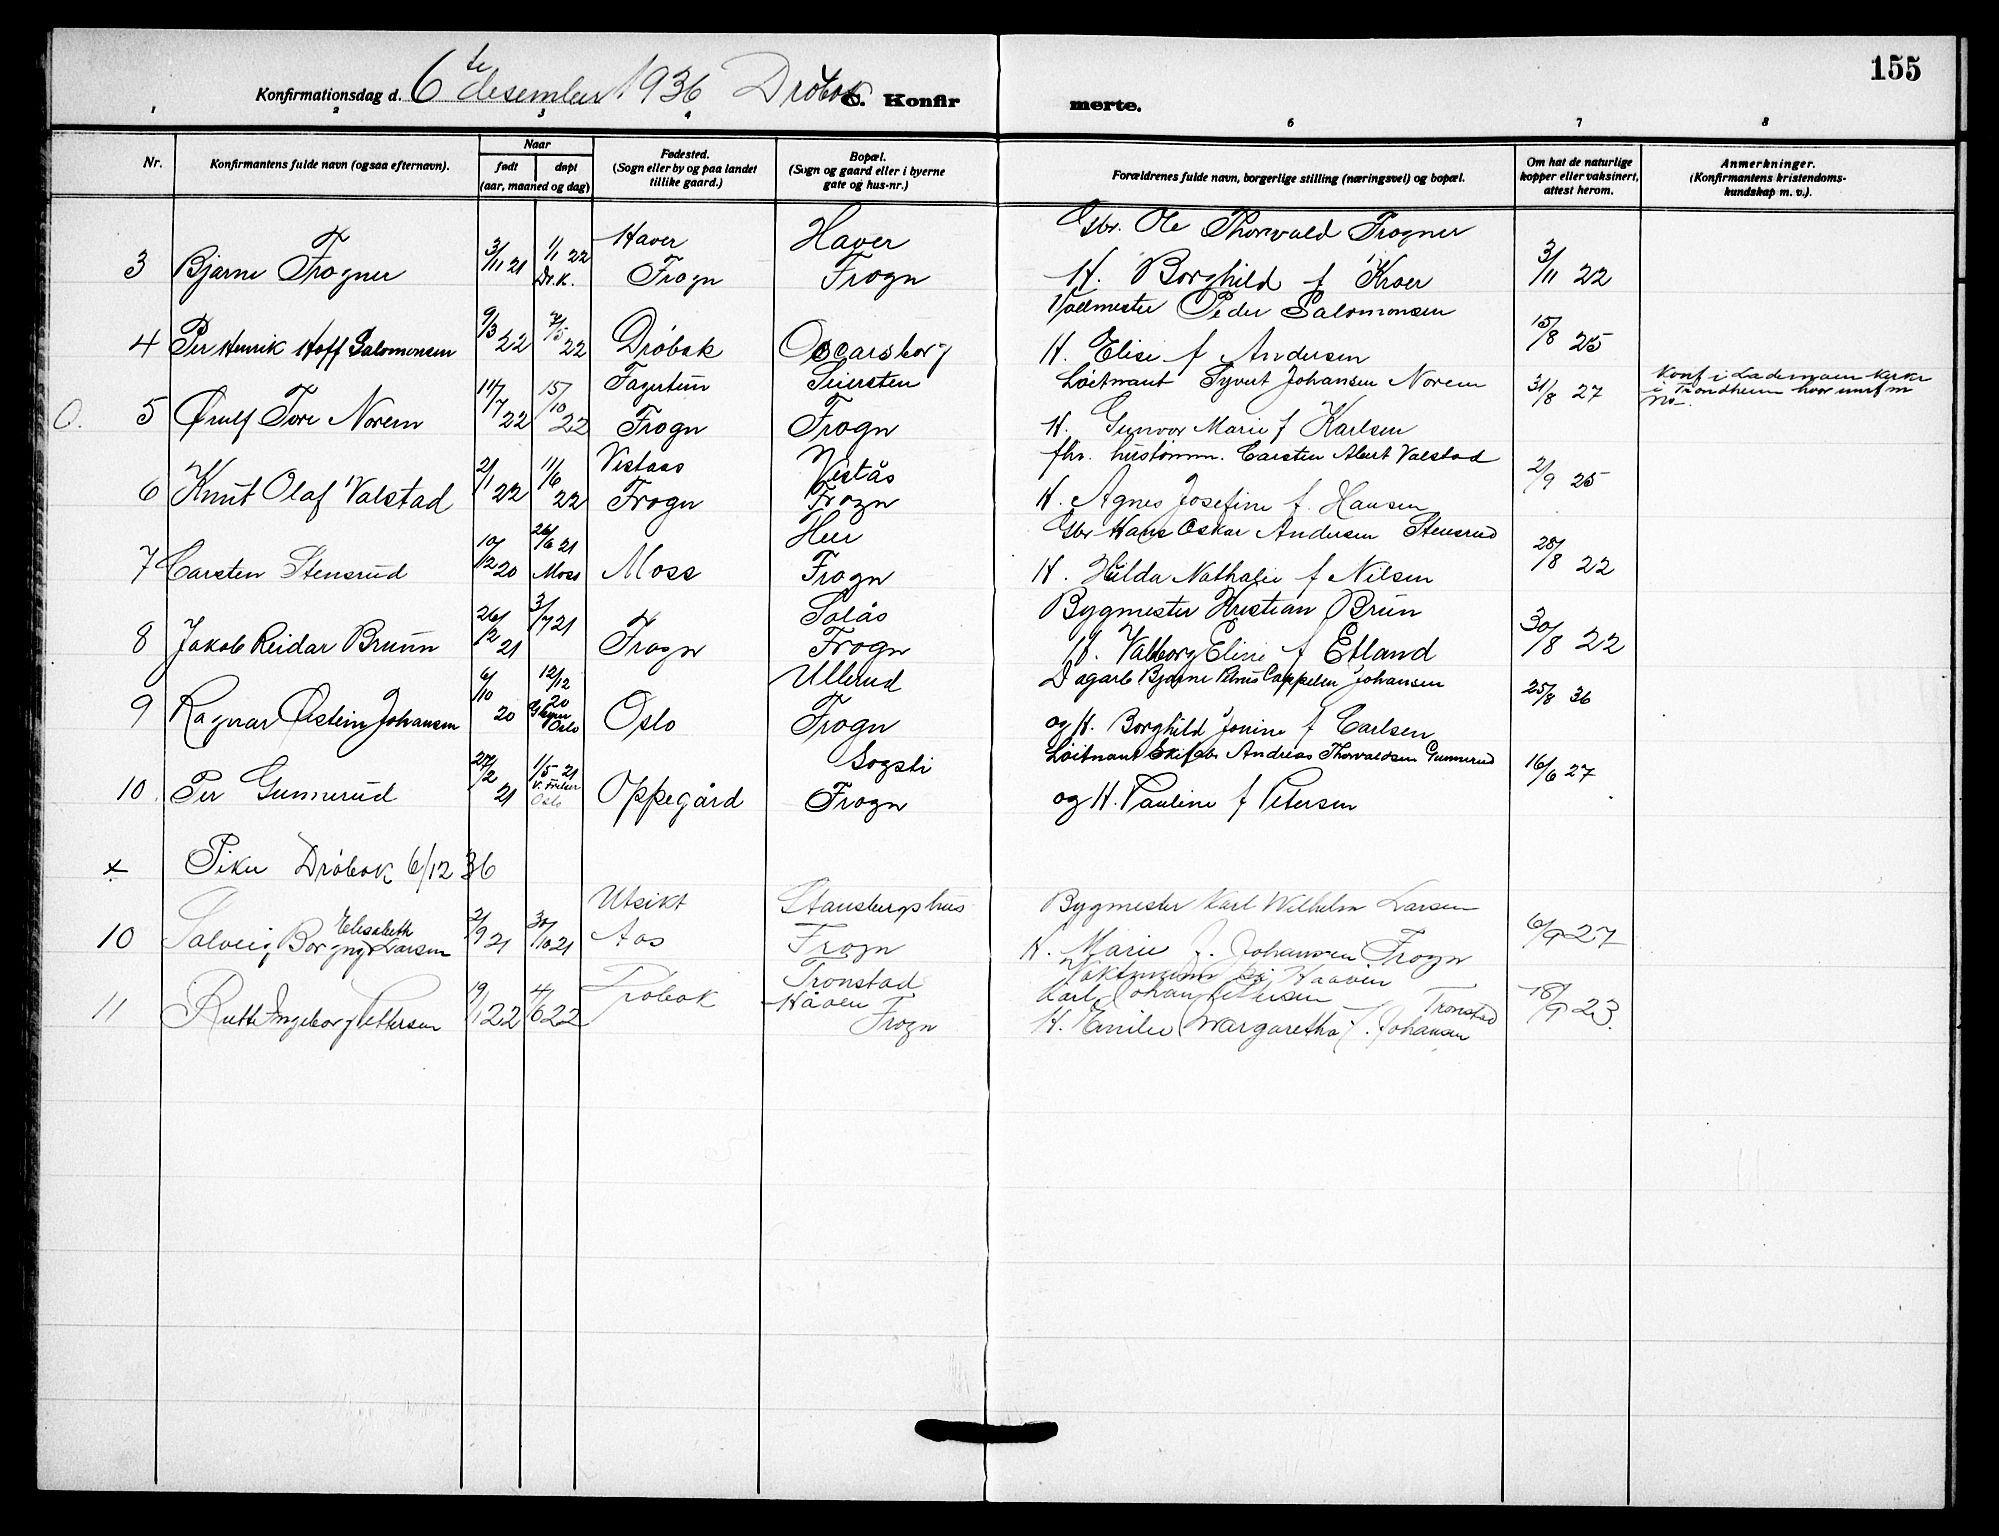 155
Konfirmationsdag d. 6te desember 1936 Drøbak C. Konfirmerte.
1 2 3 4 6 7 8
Nr. Konfirmantens fulde navn (ogsaa efternavn). Naar født døpt (aar, maaned og dag) Fødested. (Sogn eller by og paa landet tillike gaard.) Bopæl. (Sogn og gaard eller i byerne gate og hus-nr.) Forældrenes fulde navn, borgerlige stilling (næringsvei) og bopæl. Om hat de naturlige kopper eller vaksinert, attest herom. Anmerkninger. (Konfirmantens kristendoms-kundskap m. v.).
Haver Haver Gbr. Ole Thorvald Frogner
3 Bjarne Frogner 3/11 21 1/1 22 Dr.k. Frogn Frogn H. Borghild f Kroer 3/11 22
Peder Salomonsen
4 Per Henrik Hoff Salomonsen 9/3 22 7/5 22 Drøbak Oscarsborg H. Elise f Andersen 15/8 25
Fagertun Seiersten Løitnant Syvert Johansen Norem Konf i Lademoen kirke
O. 5 Ørnulf Tore Norem 11/7 22 15/10 22 Frogn Frogn H. Gunvor Marie f Karlsen 31/8 27 i Trondheim hvor
Vistaas Vistås fhv. Carsten Albert Valstad
6 Knut Olaf Valstad 2/1 22 11/6 22 Frogn Frogn H. Agnes Josefine f. Hansen 2/9 25
Heer Gbr Hans Oskar Andersen Stensrud
7 Carsten Stensrud 10/12 20 26/6 21 Moss Moss Frogn H. Hilda Nathalie f Nilsen 28/8 22
Solås Bygmester Kristian Bruun
8 Jakob Reidar Bruun 26/2 21 3/7 21 Frogn Frogn H. Valborg Eline f Etland 30/8 22
Ullerud Dagarb Bjarne Cappelen Johansen
9 Ragnar Østein Johansen 6/10 20 12/12 20 Oslo Oslo Frogn og H. Borghild Jonine f Carlsen 25/8 36
Sogsti Løitnant Andreas Thorvaldsen Gunnerud
10. Per Gunnerud 27/2 21 1/5 21 V. Frikir Oslo Oppegård Frogn og H. Pauline f Petersen 16/6 27
x Piker Drøbak 6/12 36
Utsikt Stausbergshus Bygmester Karl Wilhelm Larsen
10 Solveig Borgny Elisabeth Larsen 2/9 21 30/10 21 Aas Frogn H. Marie f. Johansen Frogn 6/9 27
Tronstad Vaktmann på Haaven
11 Ruth Ingeborg Pettersen 19/1 22 4/6 22 Drøbak Håven Frogn Karl Johan Pettersen Tronstad 18/9 23.
H. Emilie Margaretha f. Johansen